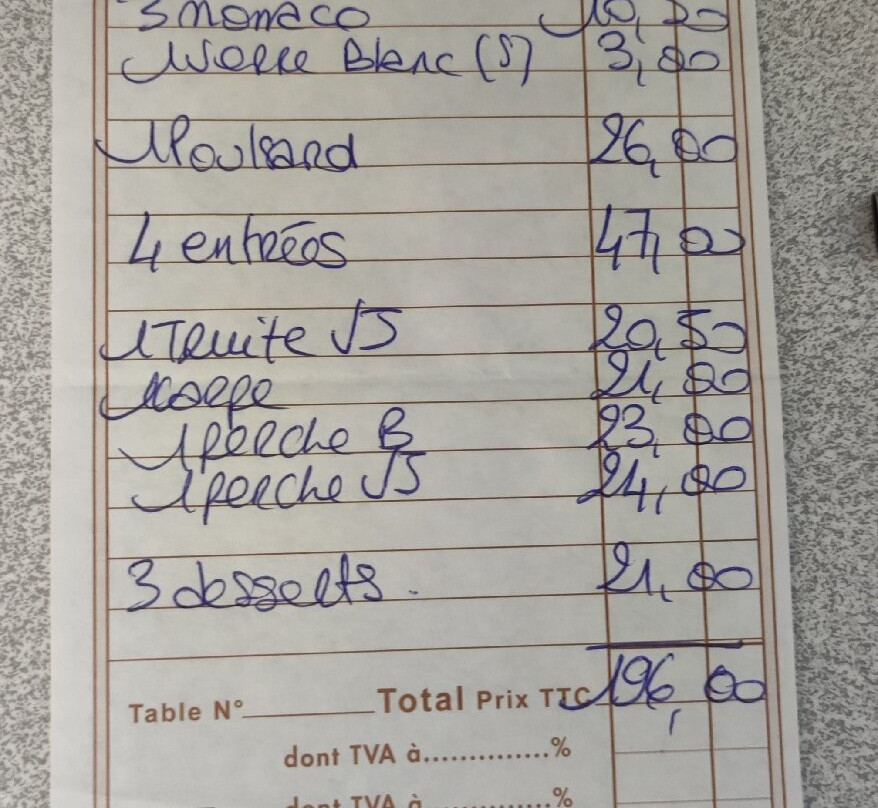 3 Monaco 10,50
1 Verre Blanc (S) 3,00
1 Poulsard 26,00
4 entrées 47,00
1 Truite VJ 20,50
1 Carpe 21,00
1 perche B 23,00
1 perche VJ 24,00
3 desserts. 21,00
Table N°________ Total Prix TTC 196,00
dont TVA à..............%
dont TVA à..............%